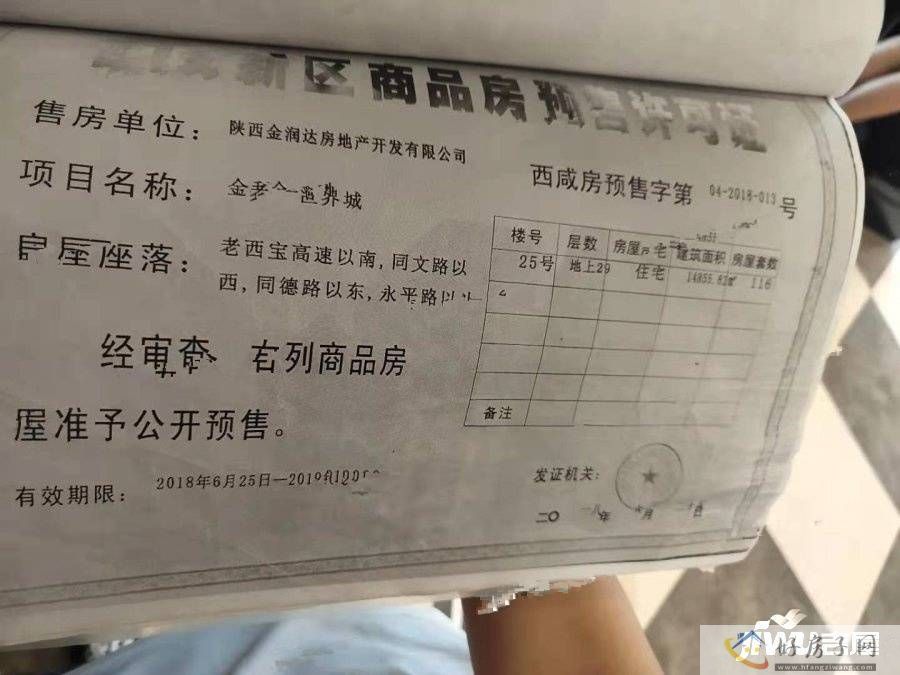 新区商品房预售许可证
售房单位：陕西金润达房地产开发有限公司
项目名称：金 世界城
房屋座落：老西宝高速以南，同文路以
西，同德路以东，永平路以
经审查 右列商品房
屋准予公开预售。
有效期限：2018年6月25日—2019
西咸房预售字第 04-2018-013 号
楼号 层数 房屋 建筑面积 房屋套数
25号 地上29 住宅 14855.82㎡ 116
备注
发证机关：
二〇一八年 月 日
好房子网
www.hfangziwang.com